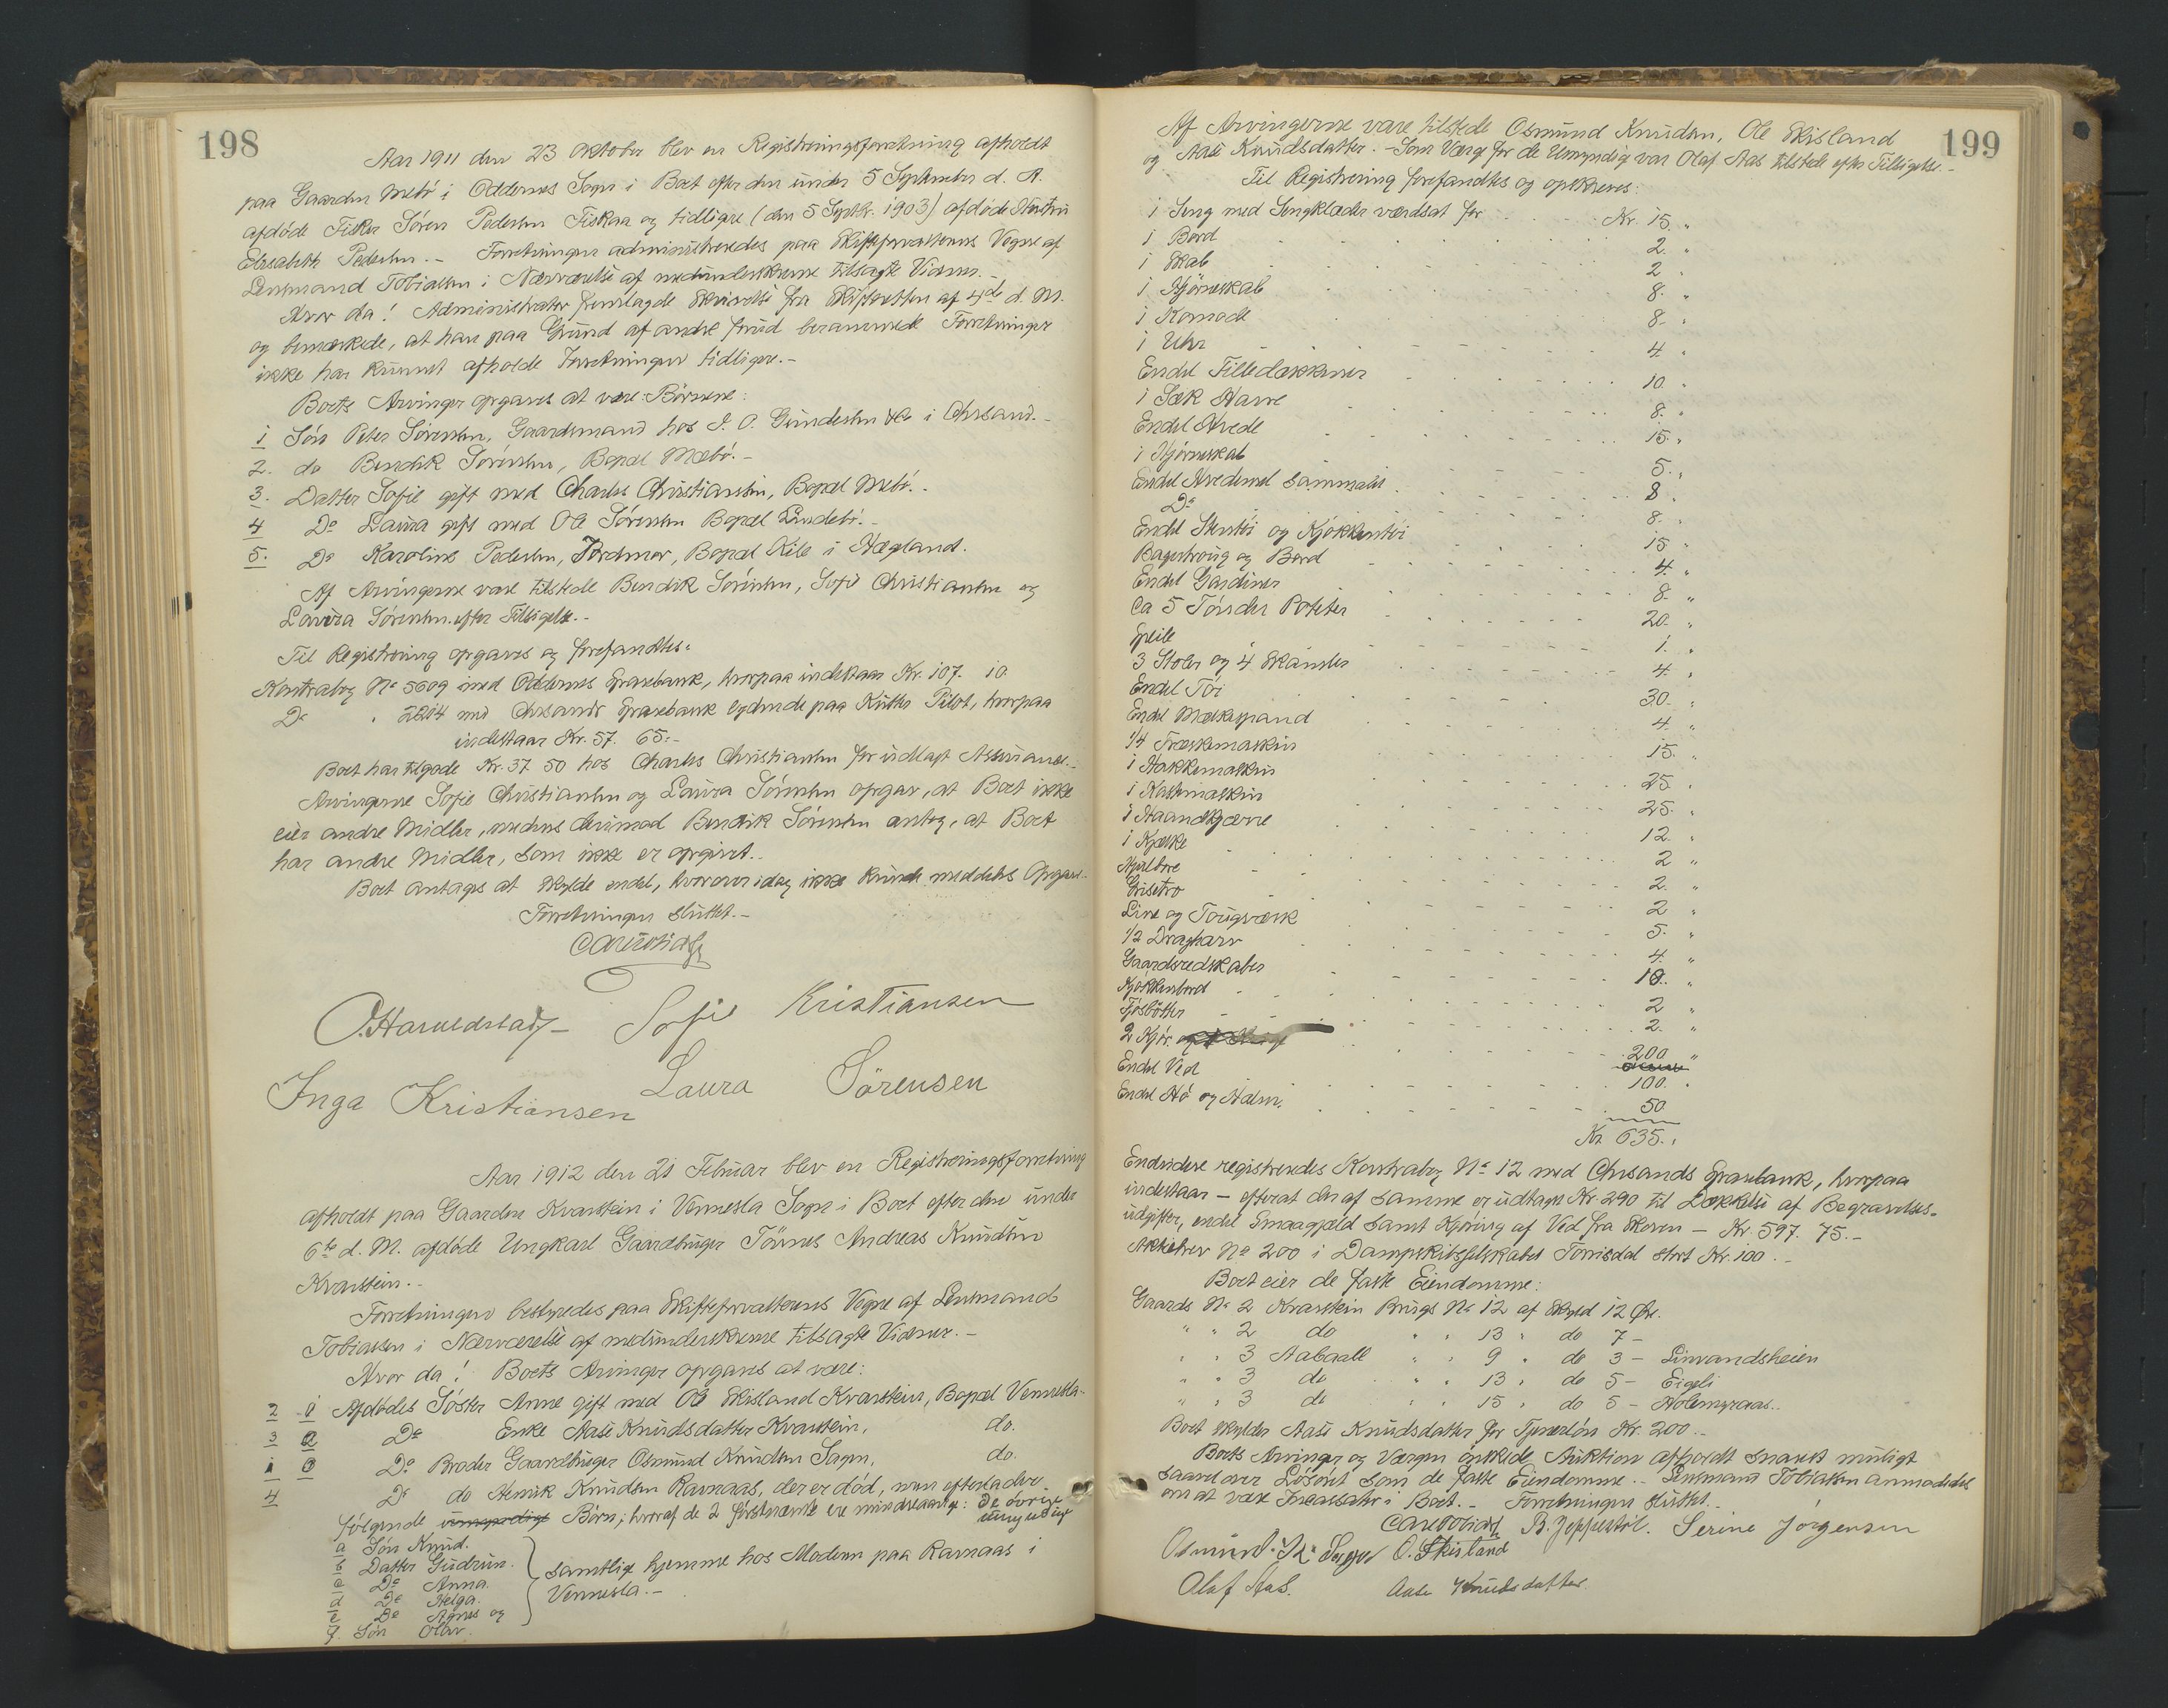 198
Aar 1911 den 23 Oktober blev en Registreringsforretning afholdt
paa Gaarden Mebö i Oddernes Sogn i Boet efter den under 5 September d. A.
afdöde Fisker Sören Pedersen Fiskaa og tidligere (den 5 Septbr. 1903) afdöde Hustru
Elisabeth Pedersen. - Forretningen administreredes paa Skifteforvalterens Vegne af
Lensmand Tobiassen i Nærværelse af medunderskrevne tilsagte Vidner. -
Hvor da! Administrator fremlagde Skrivelse fra Skifteretten af 4de d. M.
og bemærkede, at han paa Grund af andre forud berammede Forretninger
ikke har kunnet afholde Forretningen tidligere. -
Boets Arvinger opgaves at være: Börnene:
1 Sön Peter Sörensen, Gaardsmand hos S. O. Gundersen & Co i Chrsand. -
2. do Bendik Sörensen, Bopæl Mæbö. -
3. Datter Sofie gift med Charles Christiansen, Bopæl Mebö. -
4 Do Laura gift med Ole Sörensen Bopæl Lindebö. -
5. Do Karoline Pedersen, Jordmor, Bopæl Kile i Hægland.
Af Arvingerne vare tilstede Bendik Sörensen, Sofie Christiansen og
Laura Sörensen efter Tilsigelse. -
Til Registrering opgaves og forefandtes:
Kontrabog No 5609 med Oddernes Sparebank, hvorpaa indestaar Kr. 107. 10
Do " 2214 med Chrsands Sparebank lydende paa Kutter Pilot, hvorpaa
indestaar Kr. 57. 65. -
Boet har tilgode Kr. 37 50 hos Charles Christiansen for udlagt Assurance. -
Arvingerne Sofie Christiansen og Laura Sörensen opgav, at Boet ikke
eier andre Midler, medens derimod Bendik Sörensen antog, at Boet
har andre Midler, som ikke er opgivet. -
Boet antages at skylde endel, hvorover idag ikke kunde meddeles Opgave. -
Forretningen sluttet. -
O. Haraldstad Sofie Kristiansen
Inga Kristiansen Laura Sörensen
Aar 1912 den 21 Februar blev en Registreringsforretning
afholdt paa Gaarden Kvarstein i Vennesla Sogn i Boet efter den under
6te d. M. afdöde Ungkarl Gaardbruger Tönnes Andreas Knudsen
Kvarstein. -
Forretningen bestyredes paa Skifteforvalterens Vegne af Lensmand
Tobiassen i Nærværelse af medunderskrevne tilsagte Vidner. -
Hvor da! Boets Arvinger opgaves at være:
2 1 Afdödes Söster Anne gift med Ole Skisland Kvarstein, Bopæl Vennesla -
3 2 Do Enke Aase Knudsdatter Kvarstein, do.
1 3 Do Broder Gaardbruger Osmund Knudsen Sagen, do.
4 Do do Henrik Knudsen Ravnaas, der er död, men efterlader
følgende umyndige Börn, hvoraf de 2 förstnævnte ere mindreaarige: De övrige
umyndige
a Sön Knud.
b Datter Gudrun.
c Do Anna.
d Do Helga.
e Do Agnes og
f. Sön Olav.
samtlige hjemme hos Moderen paa Ravnaas i
Vennesla. -
199
Af Arvingerne vare tilstede Osmund Knudsen, Ole Skisland
og Aase Knudsdatter. - Som Værge for de Umyndige var Olaf Aas tilstede efter Tilsigelse. -
Til Registrering forefandtes og opskreves:
1 Seng med Sengklæder værdsat for Kr. 15. "
1 Bord 2. "
1 Skab 2 "
1 Hjörneskab 8. "
1 Komode 8. "
1 Uhr 4. "
Endel Filledækkener 10. "
1 Sæk Havre 8. "
Endel Hvede 15. "
1 Hjörneskab 5. "
Endel Hvedemel sammalt 8. "
Do 8. "
Endel Stentöi og Kjökkentöi 15 "
Bagertroug og Bord 4. "
Endel Gardiner 8. "
Ca 5 Tönder Poteter 20. "
Speile 1. "
3 Stoler og 4 Skamler 4. "
Endel Töi 30. "
Endel Mælkespand 4. "
1/4 Træskemaskin 15. "
1 Hakkemaskin 25. "
1 Kastemaskin 25. "
1 Haandkjærre 12. "
1 Kjælke 2 "
Hjulbore 2. "
Grisetro 2 "
Line og Tougværk 5. "
1/2 Dragharv 4. "
Gaardsredskaber 10. "
Kjökkenbord 2 "
Fjösbötter 2. "
2 Kjör. 200 "
Endel Ved 100. "
Endel Hö og Halm. 50
Kr 635. "
Endvidere registreredes Kontrabog No 12 med Chrsands Sparebank, hvorpaa
indestaar - efterat der af samme er udtaget Kr. 290 til Dækkelse af Begravelses-
udgifter, endel Smaagjæld samt Kjöring af Ved fra Skoven - Kr. 597. 75. -
Aktiebrev No 200 i Dampskibsselskabet Torrisdal stort Kr. 100. -
Boet eier de faste Eiendomme:
Gaards No 2 Kvarstein Brugs No 12 af Skyld 12 Öre.
" " 2 do " " 13 " do 7 -
" " 3 Aabaall " " 9 " do 3 - Linvandsheien
" " 3 do " " 13 " do 5 - Eigeli
" " 3 do " " 15 " do 5 - Holemyraas. -
Boet skylder Aase Knudsdatter for Tjenerlön Kr. 200. -
Boets Arvinger og Værgen önskede Auktion afholdt snarest muligt
saavel over Lösöret som de faste Eiendomme. - Lensmand Tobiassen anmodedes
om at være Incassator i Boet. - Forretningen sluttet. -
B. Jeppestöl. Serine Jörgensen
Osmund. K. Sagen O. Skisland
Olaf Aas. Aase Knudsdatter.